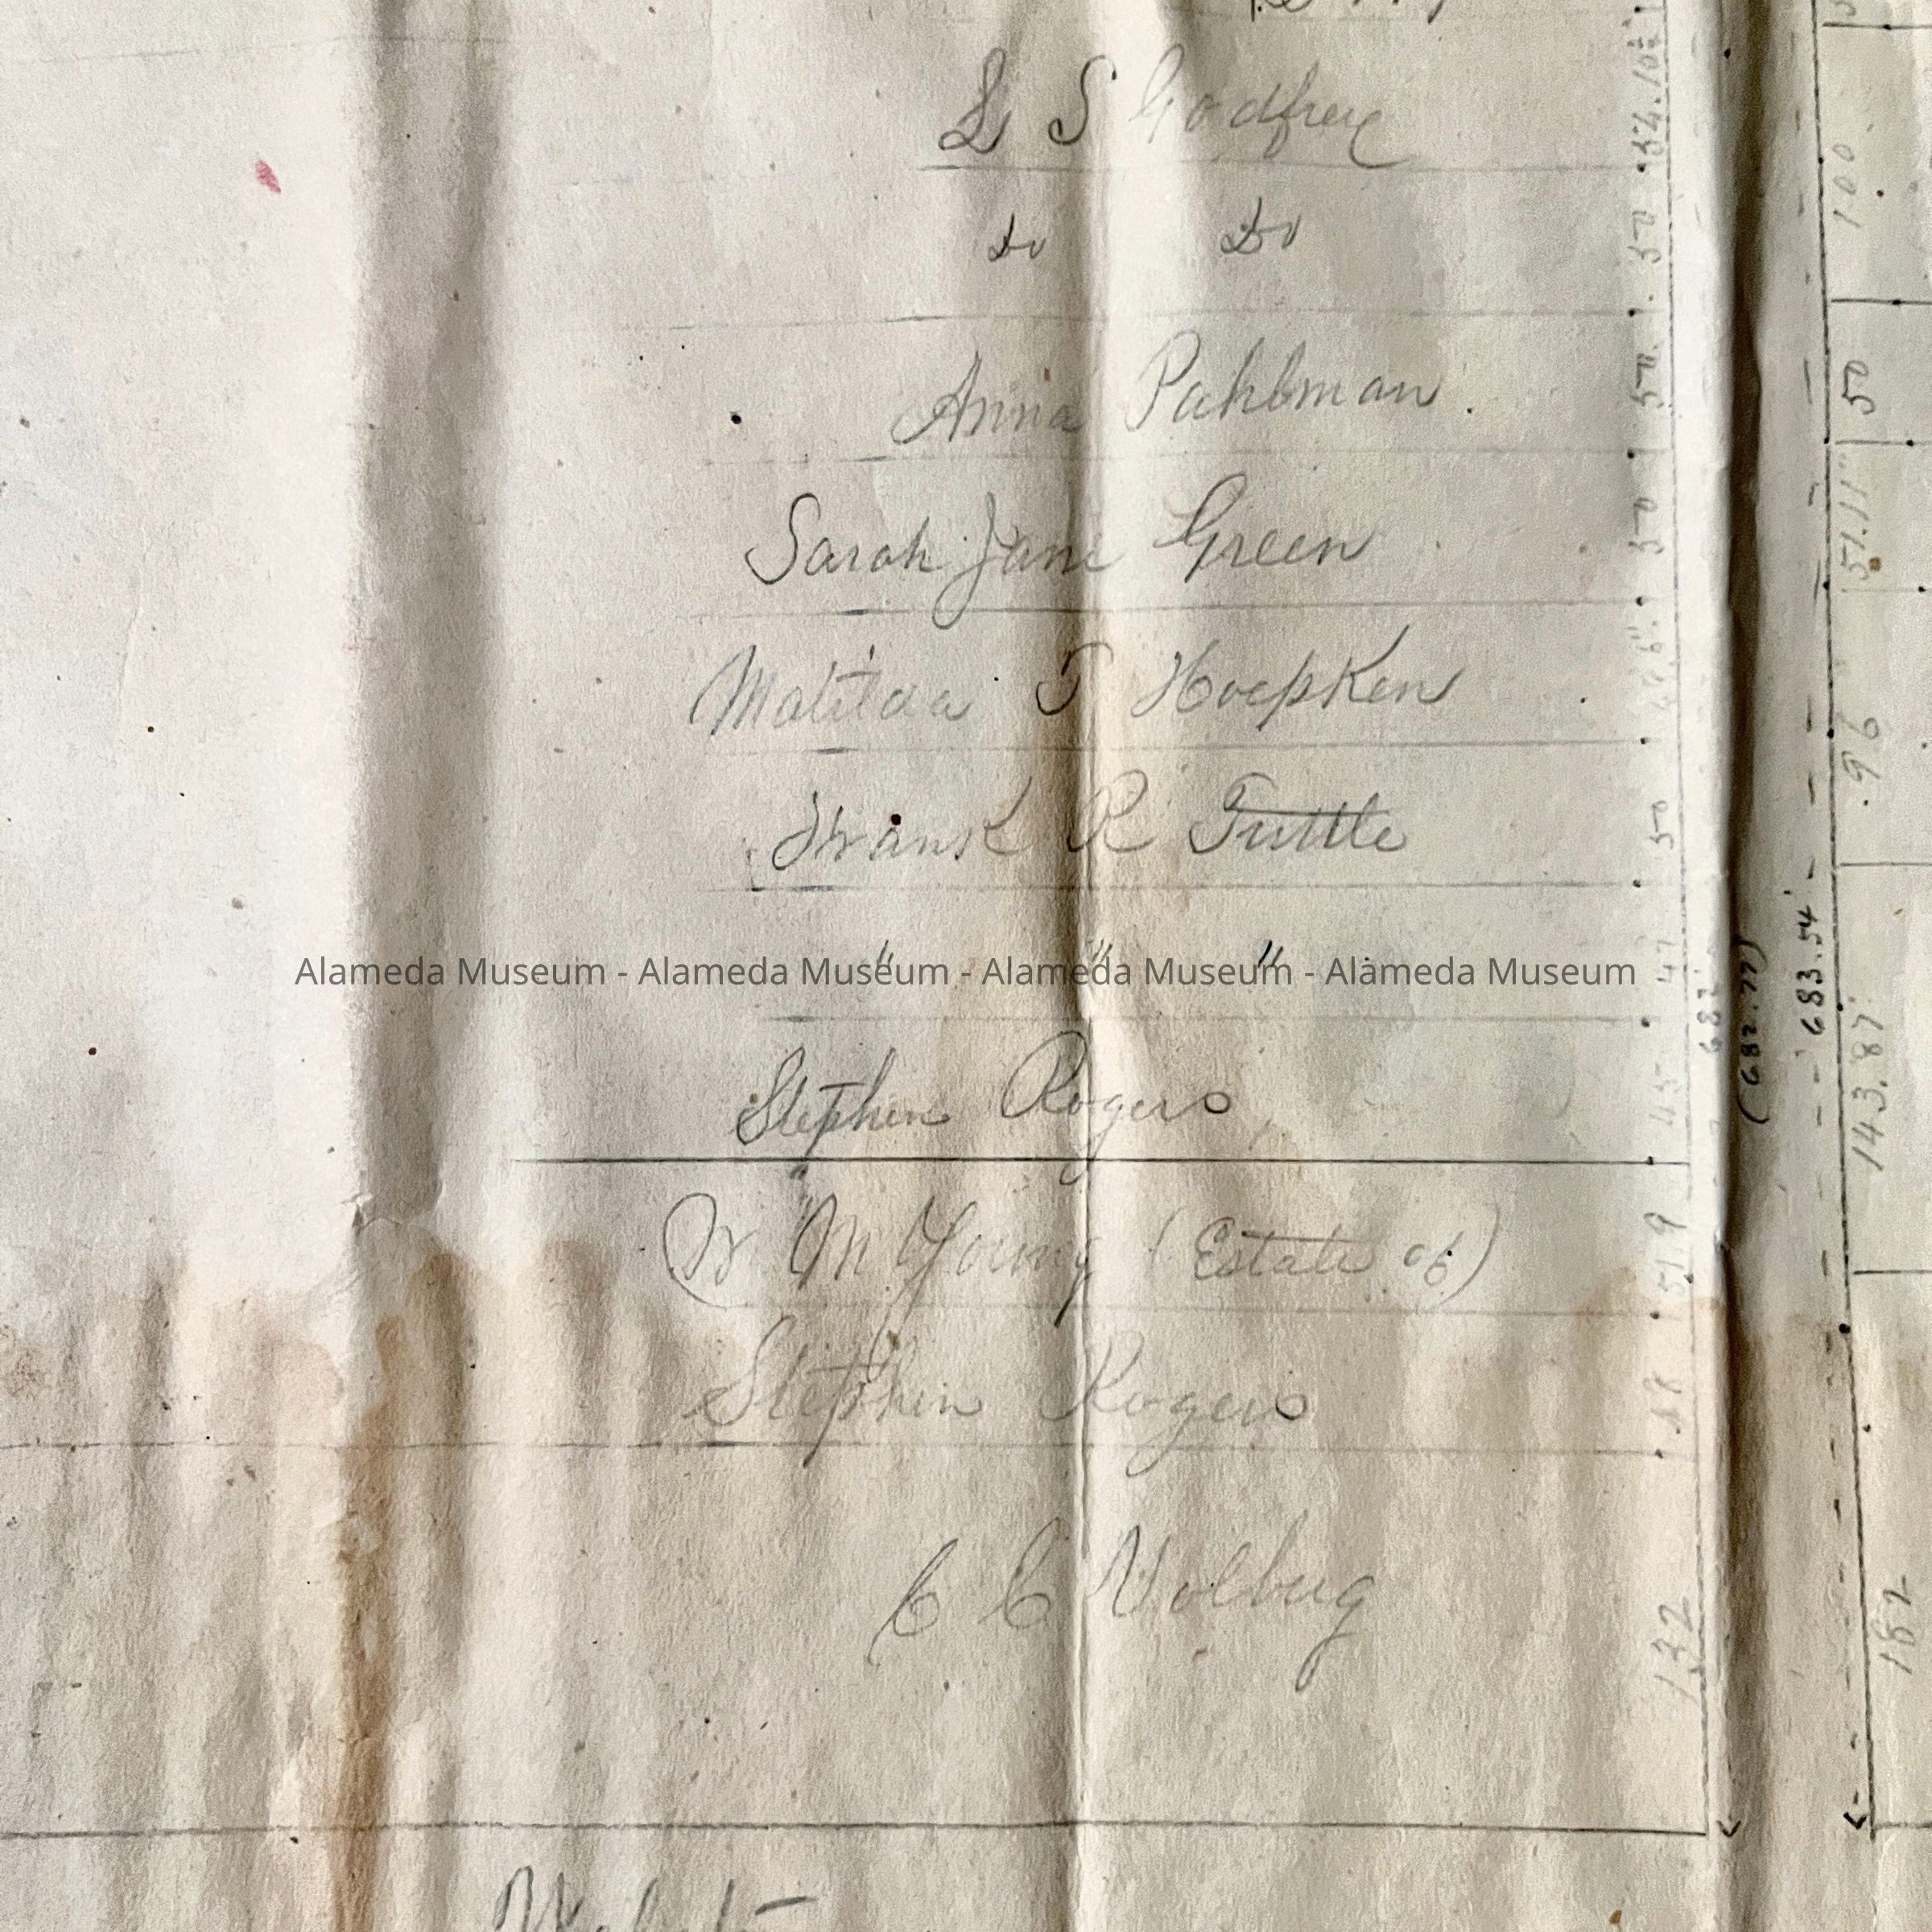 L S Godfrey
Do Do
Anna Pahlman.
Sarah Jane Green
Matilda T Hoepken
Frank R Tuttle
" " "
Alameda Museum - Alameda Museum - Alameda Museum - Alameda Museum
Stephen Rogers
W. M Young (Estate of)
Stephen Rogers
C C Volberg
50
50
50
50
47
45
51.9
132
682
(682.77)
683.54'
100
50
51.11"
96
143.87'
182